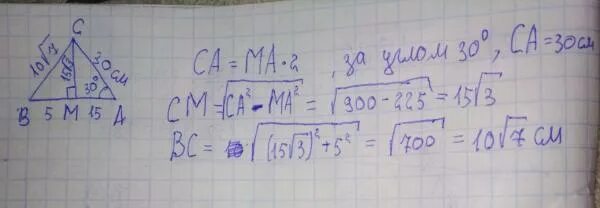 C
10√7
15√3
20 см
30°
B 5 M 15 A
CA = MA·2, за углом 30°, CA = 30 см
CM = √CA² - MA² = √900 - 225 = 15√3
BC = √(15√3)² + 5² = √700 = 10√7 см